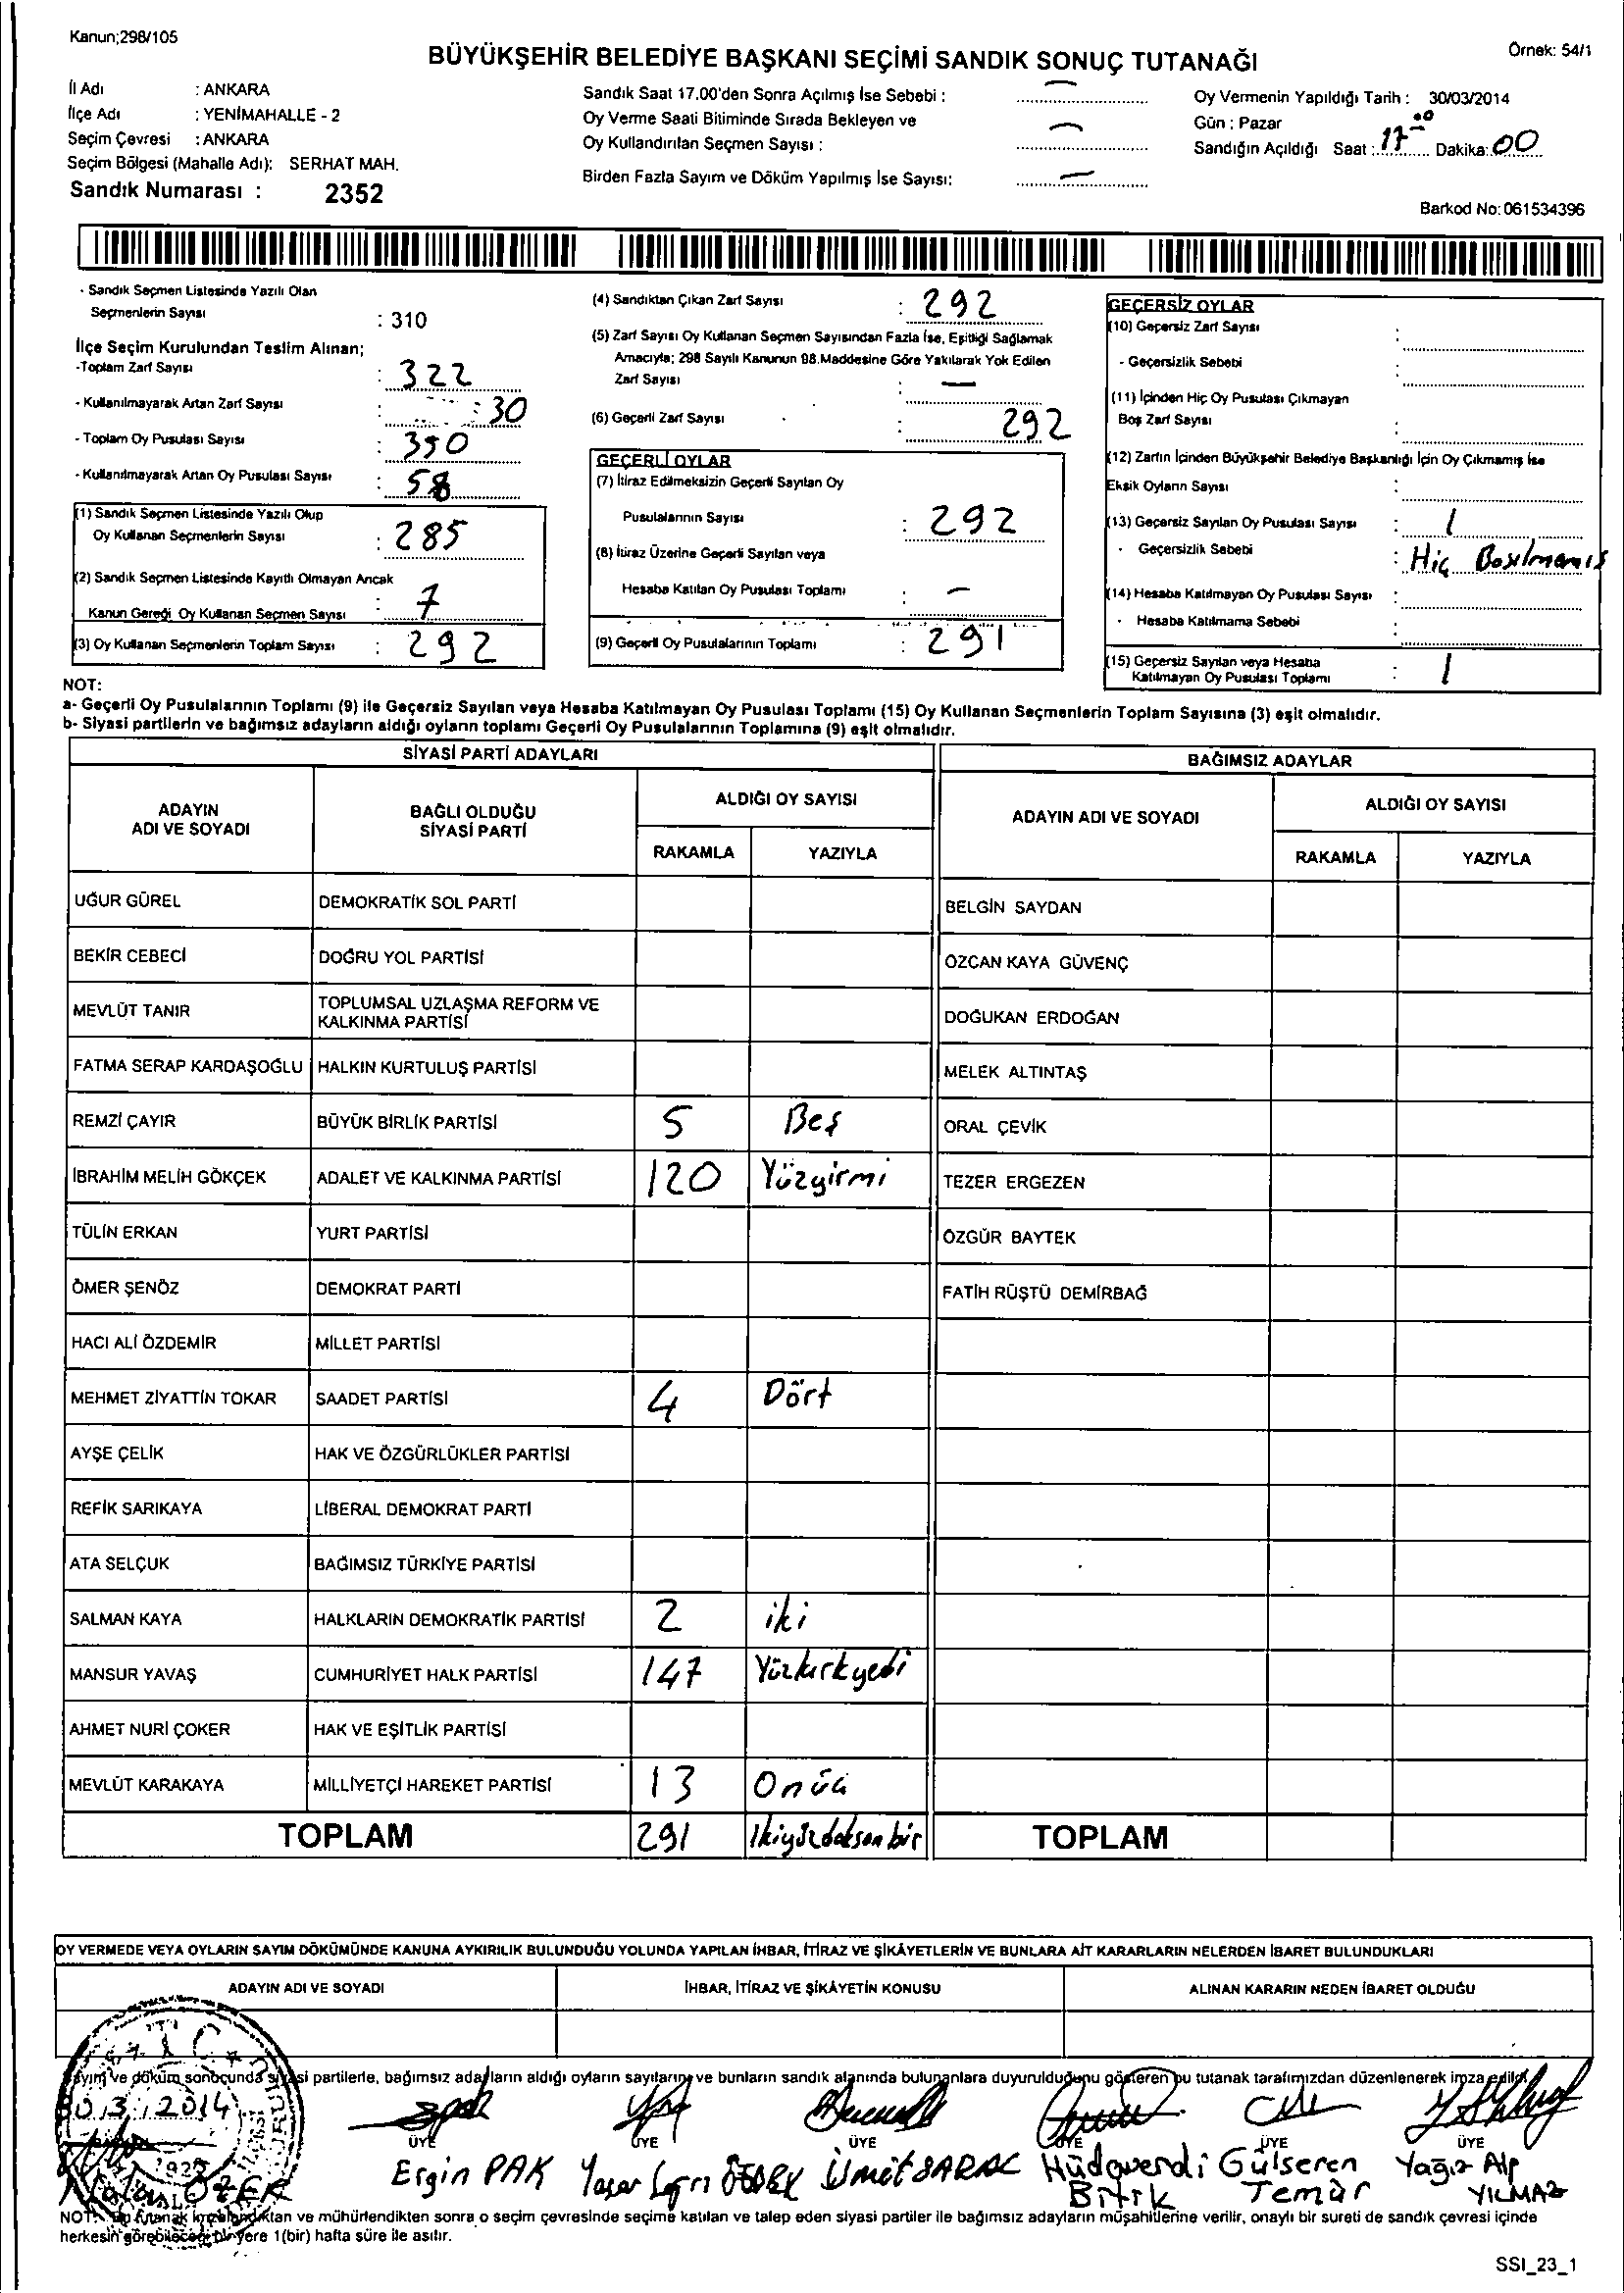 Kanun;298/105
BÜYÜKŞEHİR BELEDİYE BAŞKANI SEÇİMİ SANDIK SONUÇ TUTANAĞI
Örnek: 54/1
İl Adı : ANKARA
İlçe Adı : YENİMAHALLE - 2
Seçim Çevresi : ANKARA
Seçim Bölgesi (Mahalle Adı): SERHAT MAH.
Sandık Numarası : 2352
Sandık Saat 17.00'den Sonra Açılmış İse Sebebi : —
Oy Verme Saati Bitiminde Sırada Bekleyen ve
Oy Kullandırılan Seçmen Sayısı : —
Birden Fazla Sayım ve Döküm Yapılmış İse Sayısı: —
Oy Vermenin Yapıldığı Tarih : 30/03/2014
Gün : Pazar
Sandığın Açıldığı Saat : 17-00 Dakika: 00
Barkod No: 061534396
- Sandık Seçmen Listesinde Yazılı Olan
Seçmenlerin Sayısı : 310
İlçe Seçim Kurulundan Teslim Alınan;
-Toplam Zarf Sayısı : 322
- Kullanılmayarak Artan Zarf Sayısı : 30
- Toplam Oy Pusulası Sayısı : 350
- Kullanılmayarak Artan Oy Pusulası Sayısı : 58
(1) Sandık Seçmen Listesinde Yazılı Olup
Oy Kullanan Seçmenlerin Sayısı : 285
(2) Sandık Seçmen Listesinde Kayıtlı Olmayan Ancak
Kanun Gereği Oy Kullanan Seçmen Sayısı : 7
(3) Oy Kullanan Seçmenlerin Toplam Sayısı : 292
(4) Sandıktan Çıkan Zarf Sayısı : 292
(5) Zarf Sayısı Oy Kullanan Seçmen Sayısından Fazla İse, Eşitliği Sağlamak
Amacıyla; 298 Sayılı Kanunun 98.Maddesine Göre Yakılarak Yok Edilen
Zarf Sayısı : —
(6) Geçerli Zarf Sayısı : 292
GEÇERLİ OYLAR
(7) İtiraz Edilmeksizin Geçerli Sayılan Oy
Pusulalarının Sayısı : 292
(8) İtiraz Üzerine Geçerli Sayılan veya
Hesaba Katılan Oy Pusulası Toplamı : —
(9) Geçerli Oy Pusulalarının Toplamı : 291
GEÇERSİZ OYLAR
(10) Geçersiz Zarf Sayısı :
- Geçersizlik Sebebi :
(11) İçinden Hiç Oy Pusulası Çıkmayan
Boş Zarf Sayısı :
(12) Zarfın İçinden Büyükşehir Belediye Başkanlığı İçin Oy Çıkmamış İse
Eksik Oyların Sayısı :
(13) Geçersiz Sayılan Oy Pusulası Sayısı : 1
- Geçersizlik Sebebi : Hiç Basılmamış
(14) Hesaba Katılmayan Oy Pusulası Sayısı :
- Hesaba Katılmama Sebebi :
(15) Geçersiz Sayılan veya Hesaba
Katılmayan Oy Pusulası Toplamı : 1
NOT:
a- Geçerli Oy Pusulalarının Toplamı (9) ile Geçersiz Sayılan veya Hesaba Katılmayan Oy Pusulası Toplamı (15) Oy Kullanan Seçmenlerin Toplam Sayısına (3) eşit olmalıdır.
b- Siyasi partilerin ve bağımsız adayların aldığı oyların toplamı Geçerli Oy Pusulalarının Toplamına (9) eşit olmalıdır.
SİYASİ PARTİ ADAYLARI
BAĞIMSIZ ADAYLAR
ADAYIN ADI VE SOYADI
BAĞLI OLDUĞU SİYASİ PARTİ
ALDIĞI OY SAYISI
RAKAMLA YAZIYLA
ADAYIN ADI VE SOYADI
ALDIĞI OY SAYISI
RAKAMLA YAZIYLA
UĞUR GÜREL DEMOKRATİK SOL PARTİ BELGİN SAYDAN
BEKİR CEBECİ DOĞRU YOL PARTİSİ ÖZCAN KAYA GÜVENÇ
MEVLÜT TANIR TOPLUMSAL UZLAŞMA REFORM VE KALKINMA PARTİSİ DOĞUKAN ERDOĞAN
FATMA SERAP KARDAŞOĞLU HALKIN KURTULUŞ PARTİSİ MELEK ALTINTAŞ
REMZİ ÇAYIR BÜYÜK BİRLİK PARTİSİ 5 Beş ORAL ÇEVİK
İBRAHİM MELİH GÖKÇEK ADALET VE KALKINMA PARTİSİ 120 Yüzyirmi TEZER ERGEZEN
TÜLİN ERKAN YURT PARTİSİ ÖZGÜR BAYTEK
ÖMER ŞENÖZ DEMOKRAT PARTİ FATİH RÜŞTÜ DEMİRBAĞ
HACI ALİ ÖZDEMİR MİLLET PARTİSİ
MEHMET ZİYATTİN TOKAR SAADET PARTİSİ 4 Dört
AYŞE ÇELİK HAK VE ÖZGÜRLÜKLER PARTİSİ
REFİK SARIKAYA LİBERAL DEMOKRAT PARTİ
ATA SELÇUK BAĞIMSIZ TÜRKİYE PARTİSİ
SALMAN KAYA HALKLARIN DEMOKRATİK PARTİSİ 2 iki
MANSUR YAVAŞ CUMHURİYET HALK PARTİSİ 147 Yüzkırkyedi
AHMET NURİ ÇOKER HAK VE EŞİTLİK PARTİSİ
MEVLÜT KARAKAYA MİLLİYETÇİ HAREKET PARTİSİ 13 Onüç
TOPLAM 291 İkiyüzdoksanbir TOPLAM
OY VERMEDE VEYA OYLARIN SAYIM DÖKÜMÜNDE KANUNA AYKIRILIK BULUNDUĞU YOLUNDA YAPILAN İHBAR, İTİRAZ VE ŞİKÂYETLERİN VE BUNLARA AİT KARARLARIN NELERDEN İBARET BULUNDUKLARI
ADAYIN ADI VE SOYADI İHBAR, İTİRAZ VE ŞİKÂYETİN KONUSU ALINAN KARARIN NEDEN İBARET OLDUĞU
Sayım ve döküm sonucunda siyasi partilerle, bağımsız adayların aldığı oyların sayılarını ve bunların sandık alanında bulunanlara duyurulduğunu gösteren bu tutanak tarafımızdan düzenlenerek imza edildi.
30/3/2014
ÜYE ÜYE ÜYE ÜYE ÜYE ÜYE
ÖZER Ergin PAK Yaşar Ümit SARAÇ Hüdaverdi Bitik Gülseren Temür Yağız Alp YILMAZ
NOT: Bu tutanak imzalandıktan ve mühürlendikten sonra o seçim çevresinde seçime katılan ve talep eden siyasi partiler ile bağımsız adayların müşahitlerine verilir, onaylı bir sureti de sandık çevresi içinde
herkesin görebileceği bir yere 1(bir) hafta süre ile asılır.
SSI_23_1